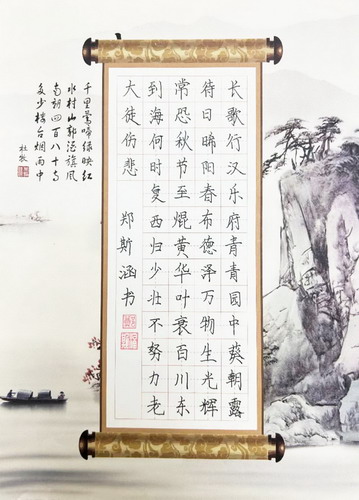 长歌行汉乐府青青园中葵朝露
待日晞阳春布德泽万物生光辉
常恐秋节至焜黄华叶衰百川东
到海何时复西归少壮不努力老
大徒伤悲 郑斯涵书
千里莺啼绿映红
水村山郭酒旗风
南朝四百八十寺
多少楼台烟雨中
杜牧